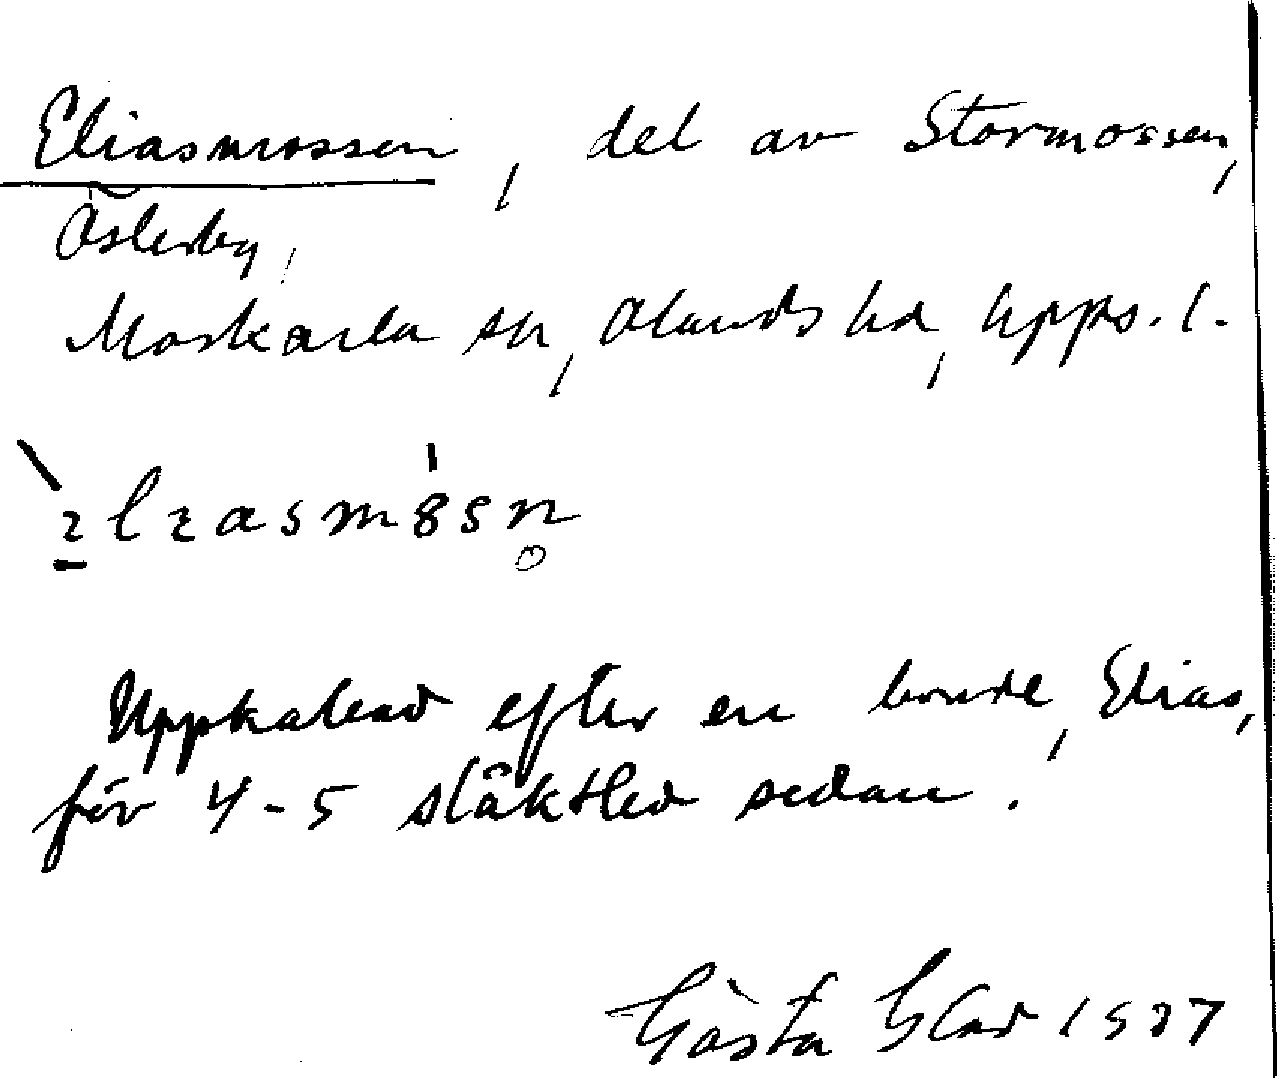 Eliasmossen, del av Stormossen,
Österby,
Morkarla sn, Olands hd, Upps. l.
ɩlɩasm8sn̥
Uppkallad efter en bonde, Elias,
för 4-5 släktled sedan.
Gösta 1937